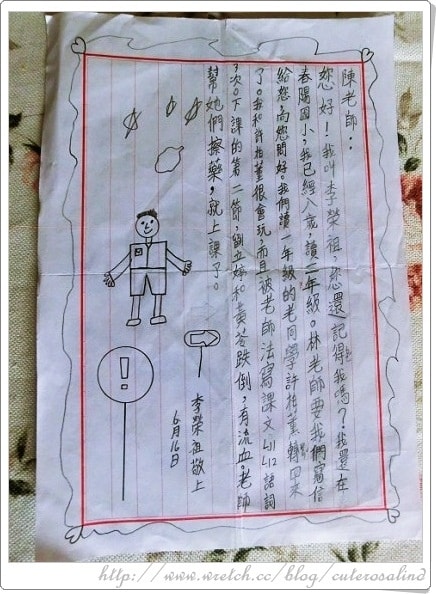 陳老師：
妳好！我叫李榮祖，您還記得我嗎？我還在
春陽國小，我已經八歲，讀二年級。林老師要我們寫信
給您，向您問好。我們讀一年級的老同學許柏薰轉回來
了。我和許柏薰很會玩，而且被老師法寫課文L11L12語詞
3次。下課的第二節，劉立婷和黃苍跌倒，有流血。老師
幫她們擦藥，就上課了。
李榮祖敬上
6月16日
!
http://www.wretch.cc/blog/cuterosalind